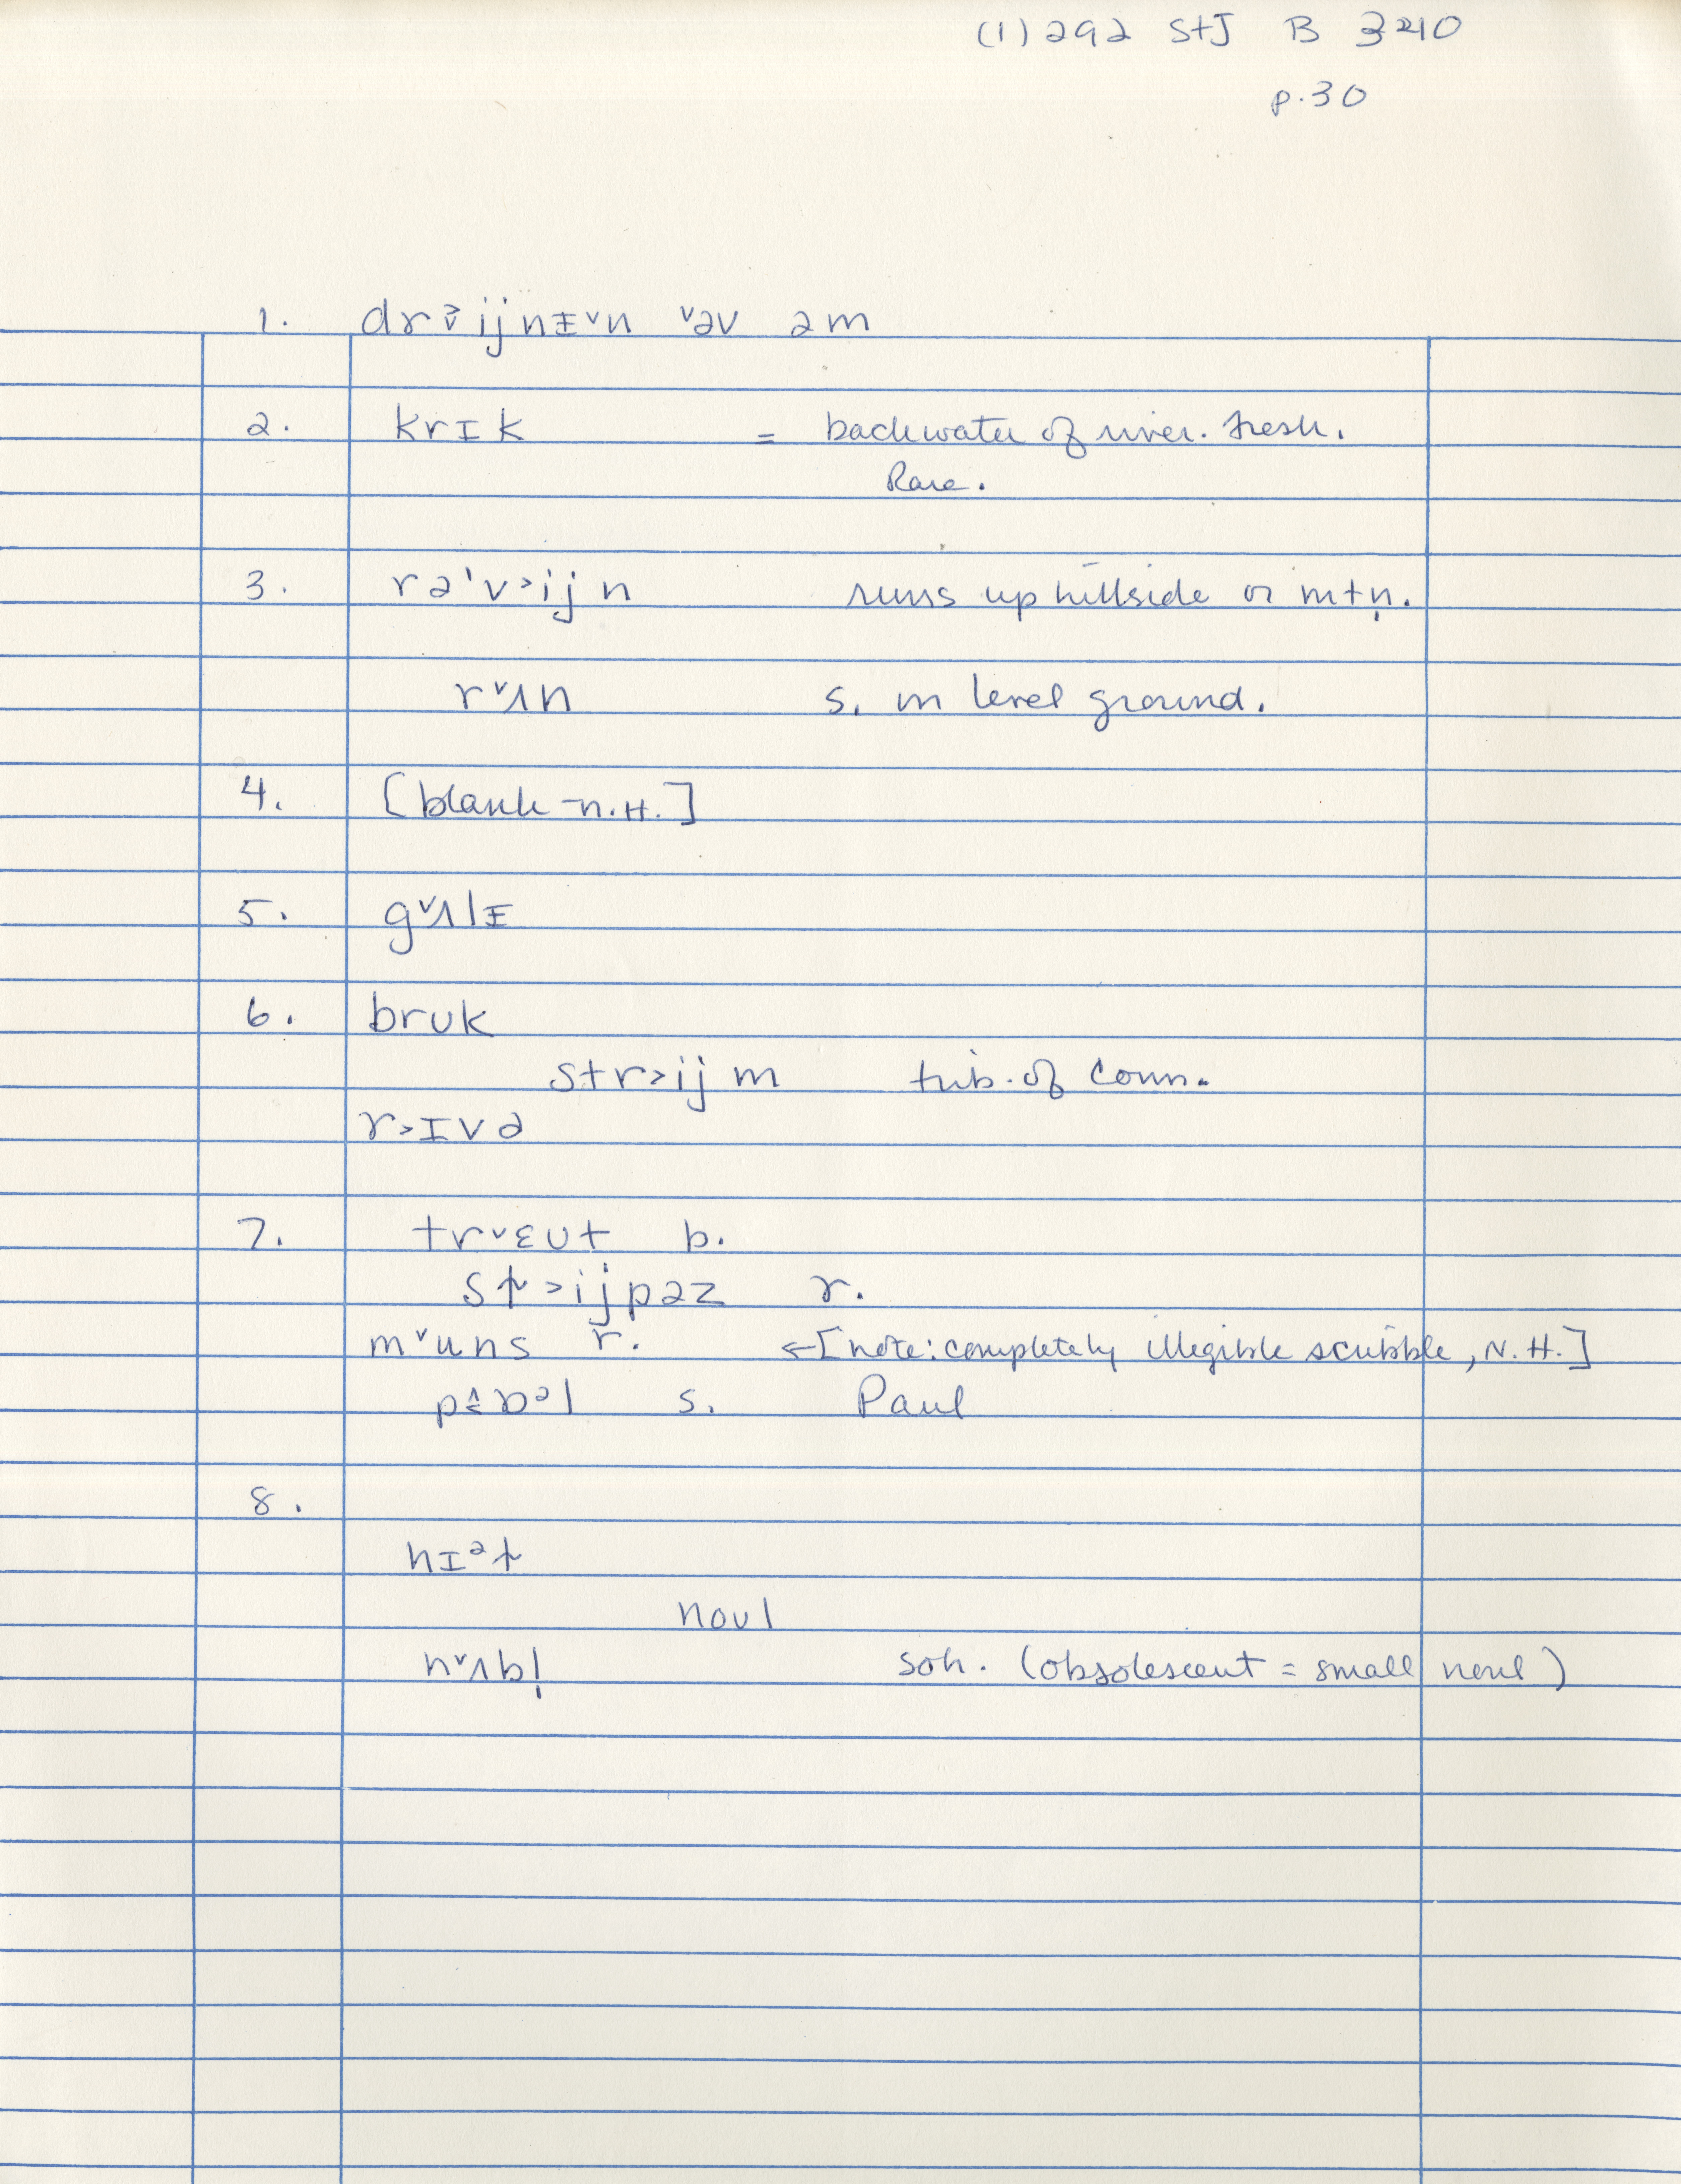 (1) 292 StJ B 3240
p. 30
1. dr ij nɪ̵ˇn ˇəv əm
2. krɪk = backwater of river. fresh.
Rare.
3. rə'v˃ij n runs up hillside or mtn̩.
rˇʌn s. in level ground.
4. [blank - N.H.]
5. gˇʌlɪ̵
6. bruk
str˃ij m trib. of Conn.
r˃ɪvə
7. trˇɛut b.
r.
mˇuns r. ←[note: completely illegible scribble, N.H.]
s. Paul
8.
noul
nˇʌbl̩ soh. (obsolescent = small noul)